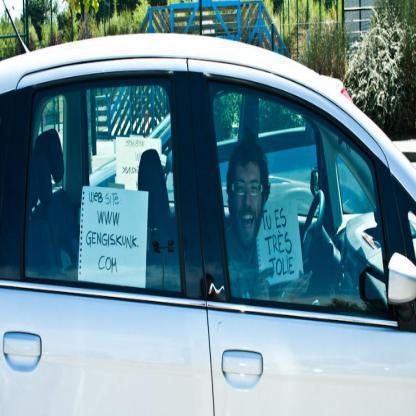 WEB SiTE
WWW
GENGISKUNK.
COM
TU ES
TRÈS
JOLIE